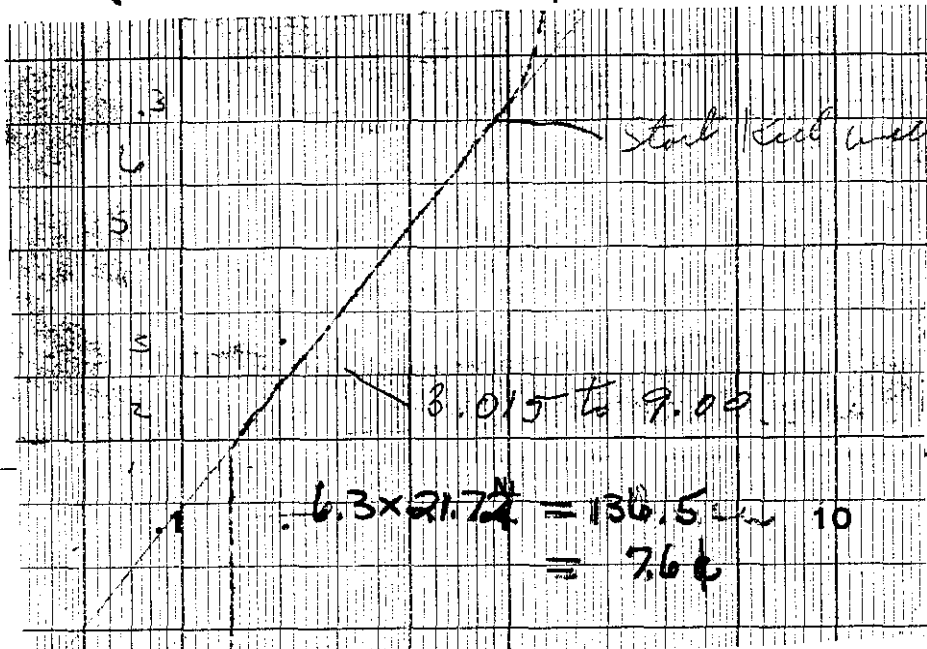 .3
6
5
3
2
Start
3.015 to 9.00
.1
6.3×21.72 = 136.5
10
= 7.6¢